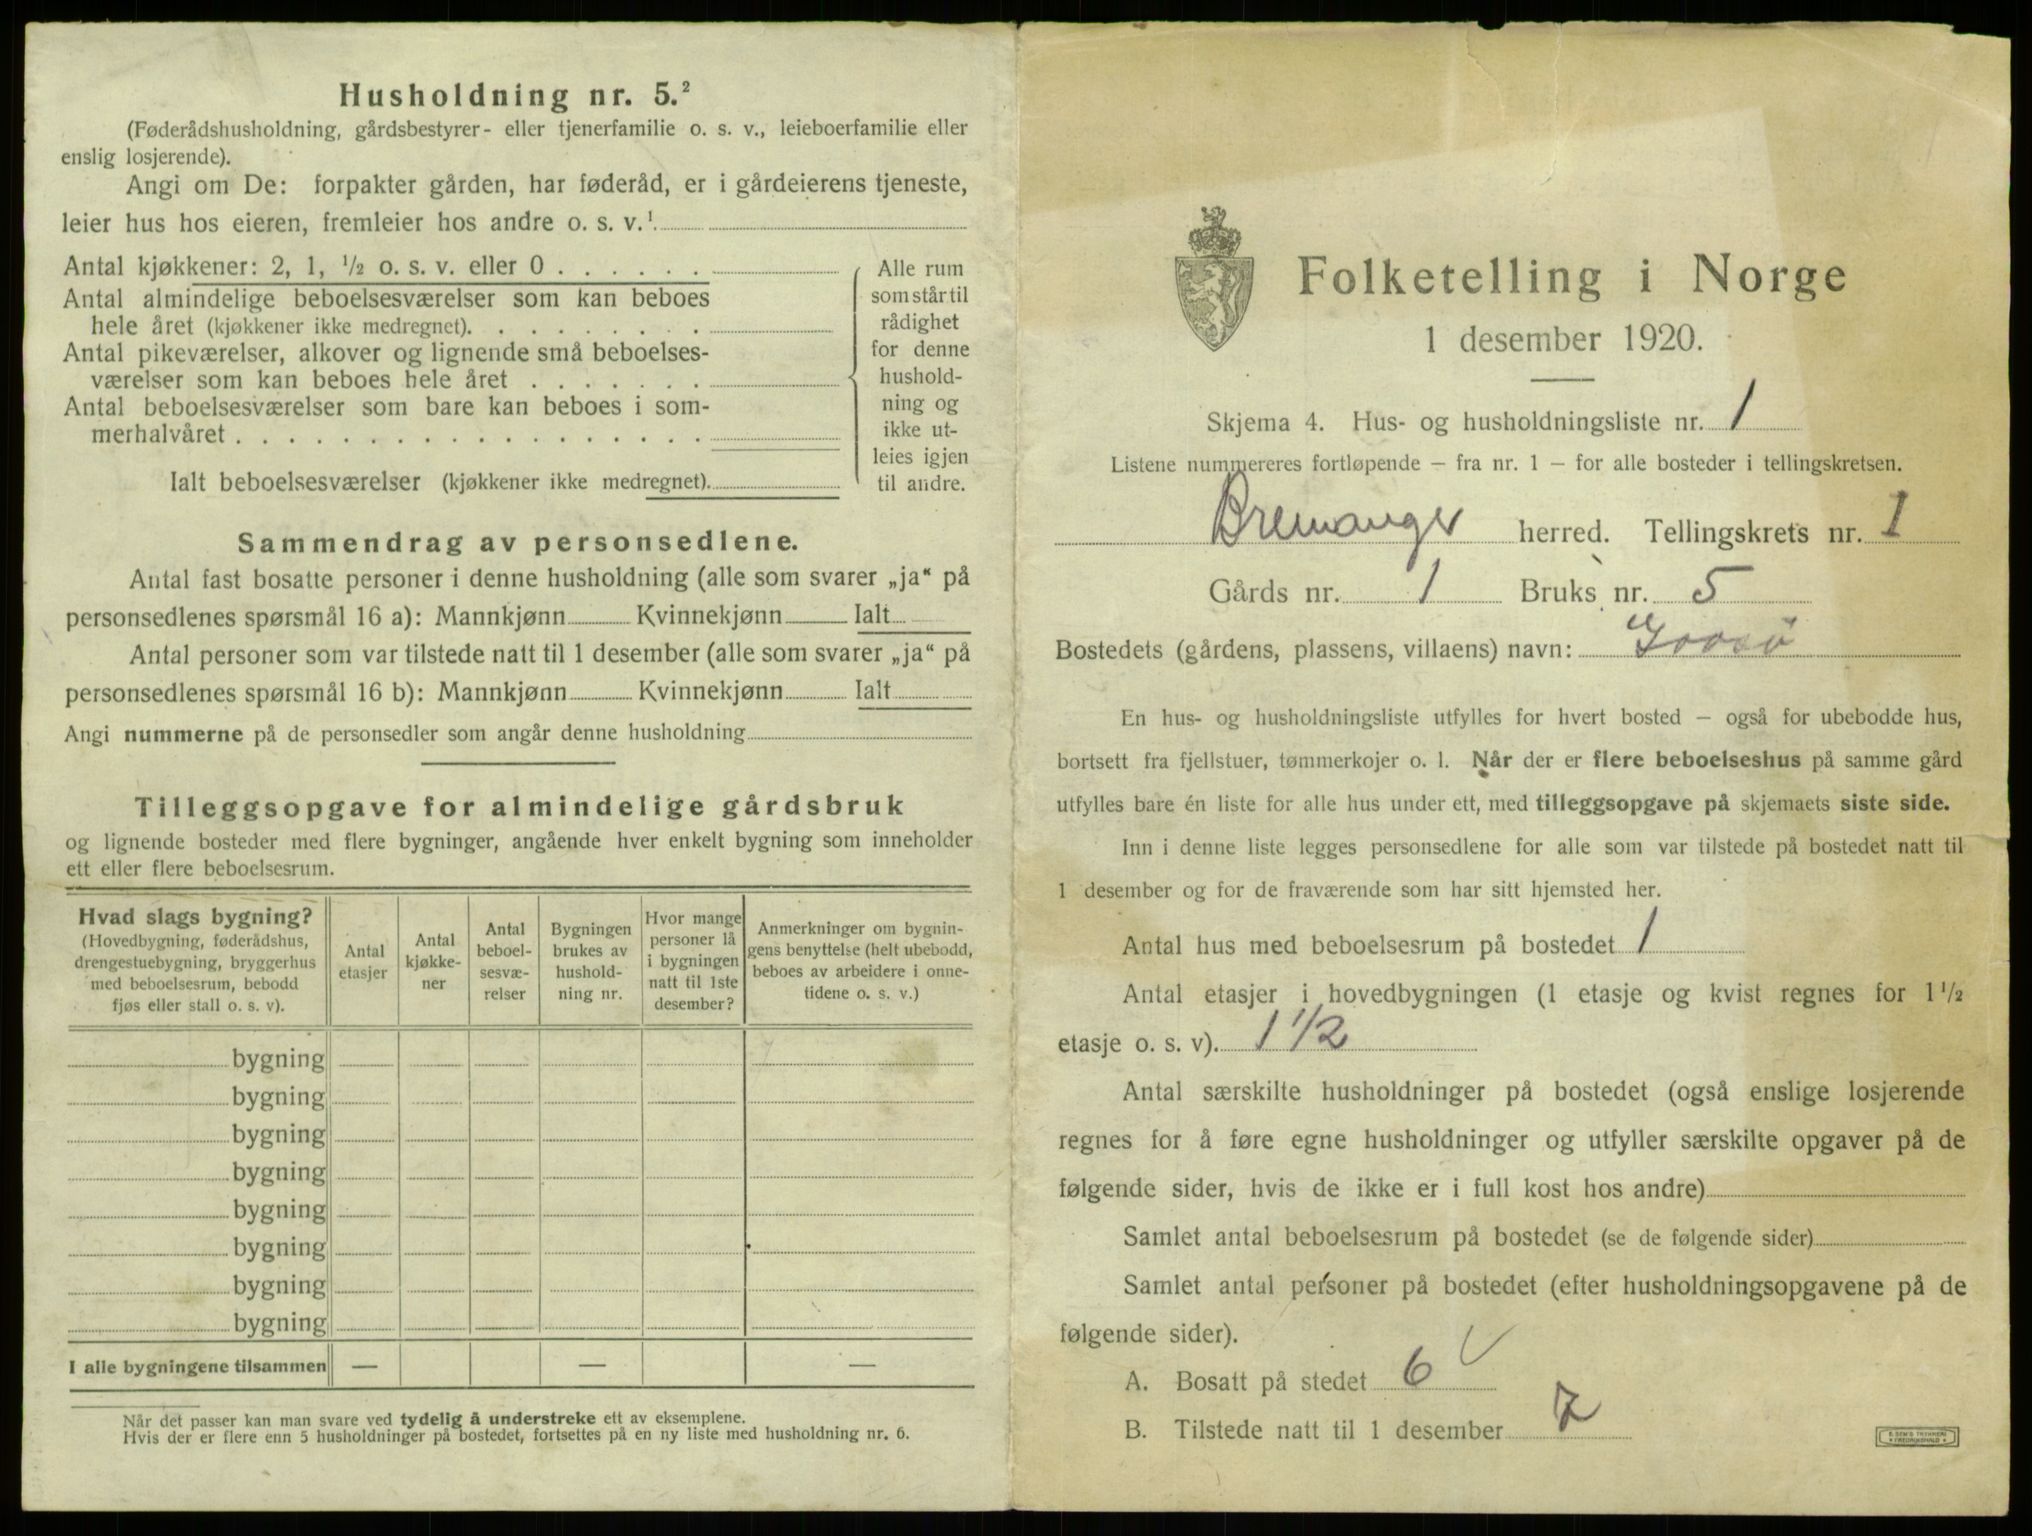 Husholdning nr. 5.²
(Føderådshusholdning, gårdsbestyrer- eller tjenerfamilie o. s. v., leieboerfamilie eller
enslig losjerende).
Angi om De: forpakter gården, har føderåd, er i gårdeierens tjeneste,
leier hus hos eieren, fremleier hos andre o. s. v.¹
Antal kjøkkener: 2, 1, ½ o. s. v. eller 0 . . . . . .
Antal almindelige beboelsesværelser som kan beboes
hele året (kjøkkener ikke medregnet). . . . . . . . .
Antal pikeværelser, alkover og lignende små beboelses-
værelser som kan beboes hele året . . . . . . .
Antal beboelsesværelser som bare kan beboes i som-
merhalvåret . . . . . . . . . . . . . . . . . .
Ialt beboelsesværelser (kjøkkener ikke medregnet).
Alle rum
som står til
rådighet
for denne
hushold-
ning og
ikke ut-
leies igjen
til andre.
Sammendrag av personsedlene.
Antal fast bosatte personer i denne husholdning (alle som svarer „ja“ på
personsedlenes spørsmål 16 a): Mannkjønn Kvinnekjønn Ialt
Antal personer som var tilstede natt til 1 desember (alle som svarer „ja“ på
personsedlenes spørsmål 16 b): Mannkjønn Kvinnekjønn Ialt
Angi nummerne på de personsedler som angår denne husholdning
Tilleggsopgave for almindelige gårdsbruk
og lignende bosteder med flere bygninger, angående hver enkelt bygning som inneholder
ett eller flere beboelsesrum.
Hvad slags bygning?
(Hovedbygning, føderådshus,
drengestuebygning, bryggerhus
med beboelsesrum, bebodd
fjøs eller stall o. s. v).
Antal
etasjer
Antal
kjøkke-
ner
Antal
beboel-
sesvæ-
relser
Bygningen
brukes av
hushold-
ning nr.
Hvor mange
personer lå
i bygningen
natt til 1ste
desember?
Anmerkninger om bygnin-
gens benyttelse (helt ubebodd,
beboes av arbeidere i onne-
tidene o. s. v.)
bygning
bygning
bygning
bygning
bygning
bygning
bygning
bygning
I alle bygningene tilsammen — — —
Når det passer kan man svare ved tydelig å understreke ett av eksemplene.
Hvis der er flere enn 5 husholdninger på bostedet, fortsettes på en ny liste med husholdning nr. 6.
Folketelling i Norge
1 desember 1920.
Skjema 4. Hus- og husholdningsliste nr. 1
Listene nummereres fortløpende — fra nr. 1 — for alle bosteder i tellingskretsen.
Bremanger herred. Tellingskrets nr. 1
Gårds nr. 1 Bruks nr. 5
Bostedets (gårdens, plassens, villaens) navn:
En hus- og husholdningsliste utfylles for hvert bosted — også for ubebodde hus,
bortsett fra fjellstuer, tømmerkojer o. l. Når der er flere beboelseshus på samme gård
utfylles bare én liste for alle hus under ett, med tilleggsopgave på skjemaets siste side.
Inn i denne liste legges personsedlene for alle som var tilstede på bostedet natt til
1 desember og for de fraværende som har sitt hjemsted her.
Antal hus med beboelsesrum på bostedet 1
Antal etasjer i hovedbygningen (1 etasje og kvist regnes for 1 ½
etasje o. s. v). 1 1/2
Antal særskilte husholdninger på bostedet (også enslige losjerende
regnes for å føre egne husholdninger og utfyller særskilte opgaver på de
følgende sider, hvis de ikke er i full kost hos andre)
Samlet antal beboelsesrum på bostedet (se de følgende sider)
Samlet antal personer på bostedet (efter husholdningsopgavene på de
følgende sider).
A. Bosatt på stedet 6 ✓
B. Tilstede natt til 1 desember 7